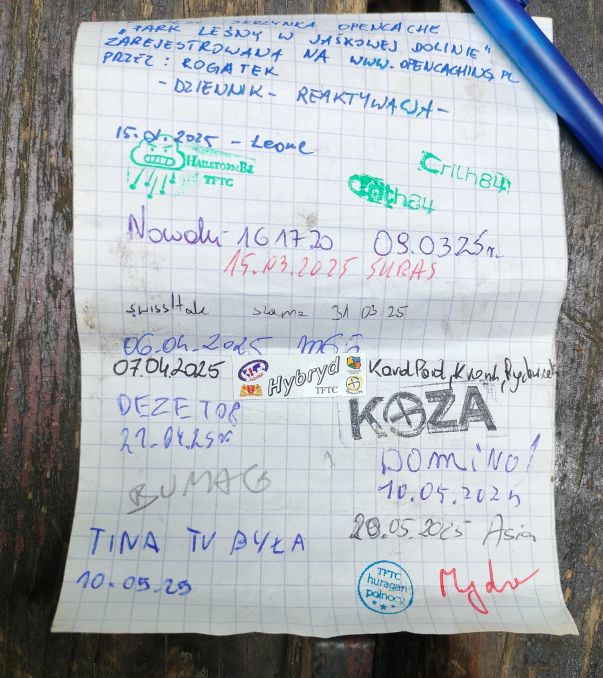 SKRZYNKA OPENCACHE
"PARK LEŚNY W JAŚKOWEJ DOLINIE"
ZAREJESTROWANA NA WWW.OPENCACHING.PL
PRZEZ: ROGATEK
-DZIENNIK- REAKTYWACJA-
15.01.2025 - Leone
HAILSTORMBA
TFTC
Crith84
Crith84
Nowaki 161720 09.03.25r.
15.03.2025 SURAS
31 03 25
06.04.2025
07.04.2025 Hybryd
TFTC
DEZETOR
21.04.25r
KOZA
DOMINO!
10.05.2025
BUMAG
20.05.2025 Asia
TINA TU BYŁA
10-05-25
TFTC
huragan
północy